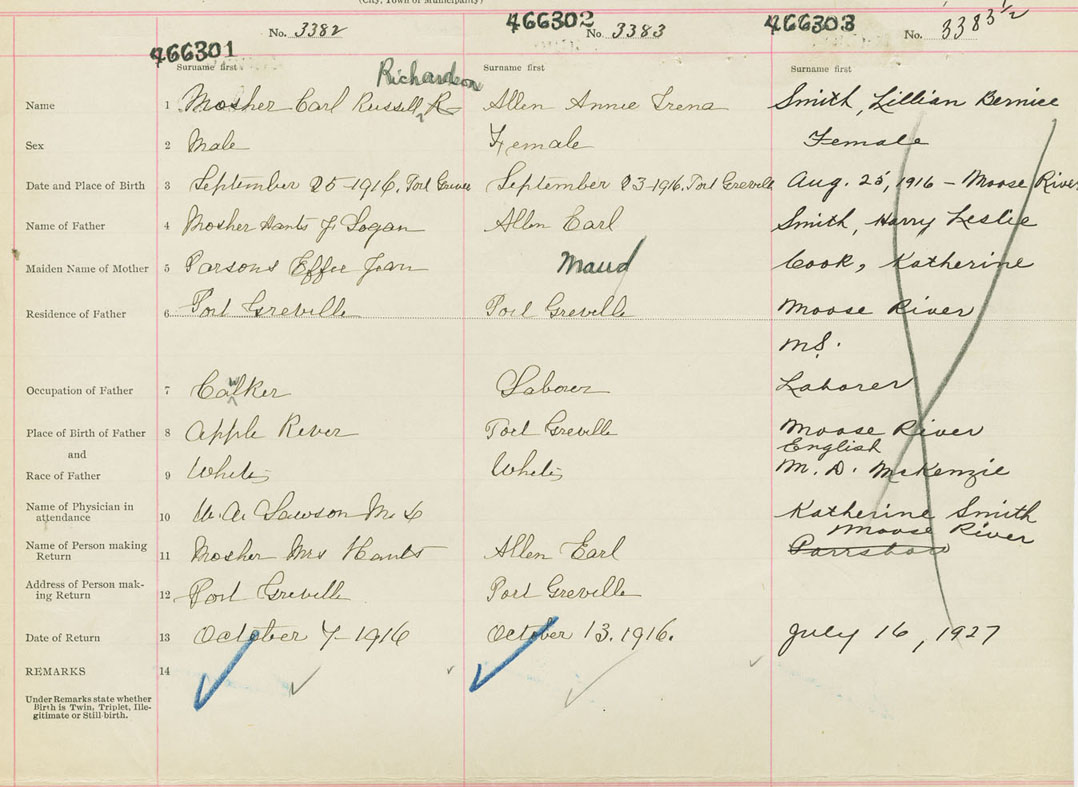 (City, Town or Municipality)
466301 No. 3382 466302 No. 3383 466303 No. 3383 1/2
Surname first Surname first Surname first
Richardson
Name 1 Mosher Carl Russell R Allen Annie Irena Smith, Lillian Bernice
Sex 2 Male Female Female
Date and Place of Birth 3 September 25-1916. Port Greville September 23-1916. Port Greville Aug. 25, 1916 - Moose River
Name of Father 4 Mosher Hants J Logan Allen Earl Smith, Harry Leslie
Maiden Name of Mother 5 Parsons Effie Jean Maud Cook, Katherine
Residence of Father 6 Port Greville Port Greville Moose River
N.S.
Occupation of Father 7 Cawlker Labourer Laborer
Place of Birth of Father 8 Apple River Port Greville Moose River
and English
Race of Father 9 White White M. D. McKenzie
Name of Physician in
attendance 10 Lawson M D Katherine Smith
Name of Person making Moose River
Return 11 Mosher Mrs Hants Allen Earl Parrsboro
Address of Person mak-
ing Return 12 Port Greville Port Greville
Date of Return 13 October 7-1916 October 13. 1916. July 16, 1927
REMARKS 14
Under Remarks state whether
Birth is Twin, Triplet, Ille-
gitimate or Still-birth.